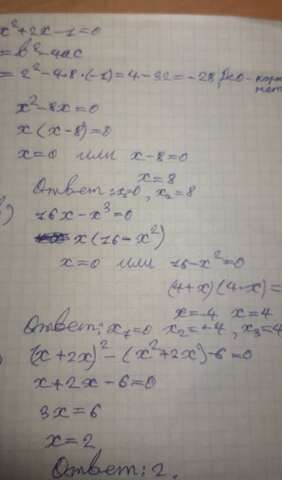 x²+2x-1=0
= b²-4ac
= 2²-4·8·(-1)=4-32=-28, D<0-корн
нет
x²-8x=0
x(x-8)=0
x=0 или x-8=0
x=8
Ответ: x₁=0, x₂=8
)
16x-x³=0
x(16-x²)
x=0 или 16-x²=0
(4+x)(4-x)=
x=-4 x=4
Ответ: x₁=0 x₂=-4, x₃=4
) (x+2x)²-(x²+2x)-6=0
x+2x-6=0
3x=6
x=2
Ответ: 2.